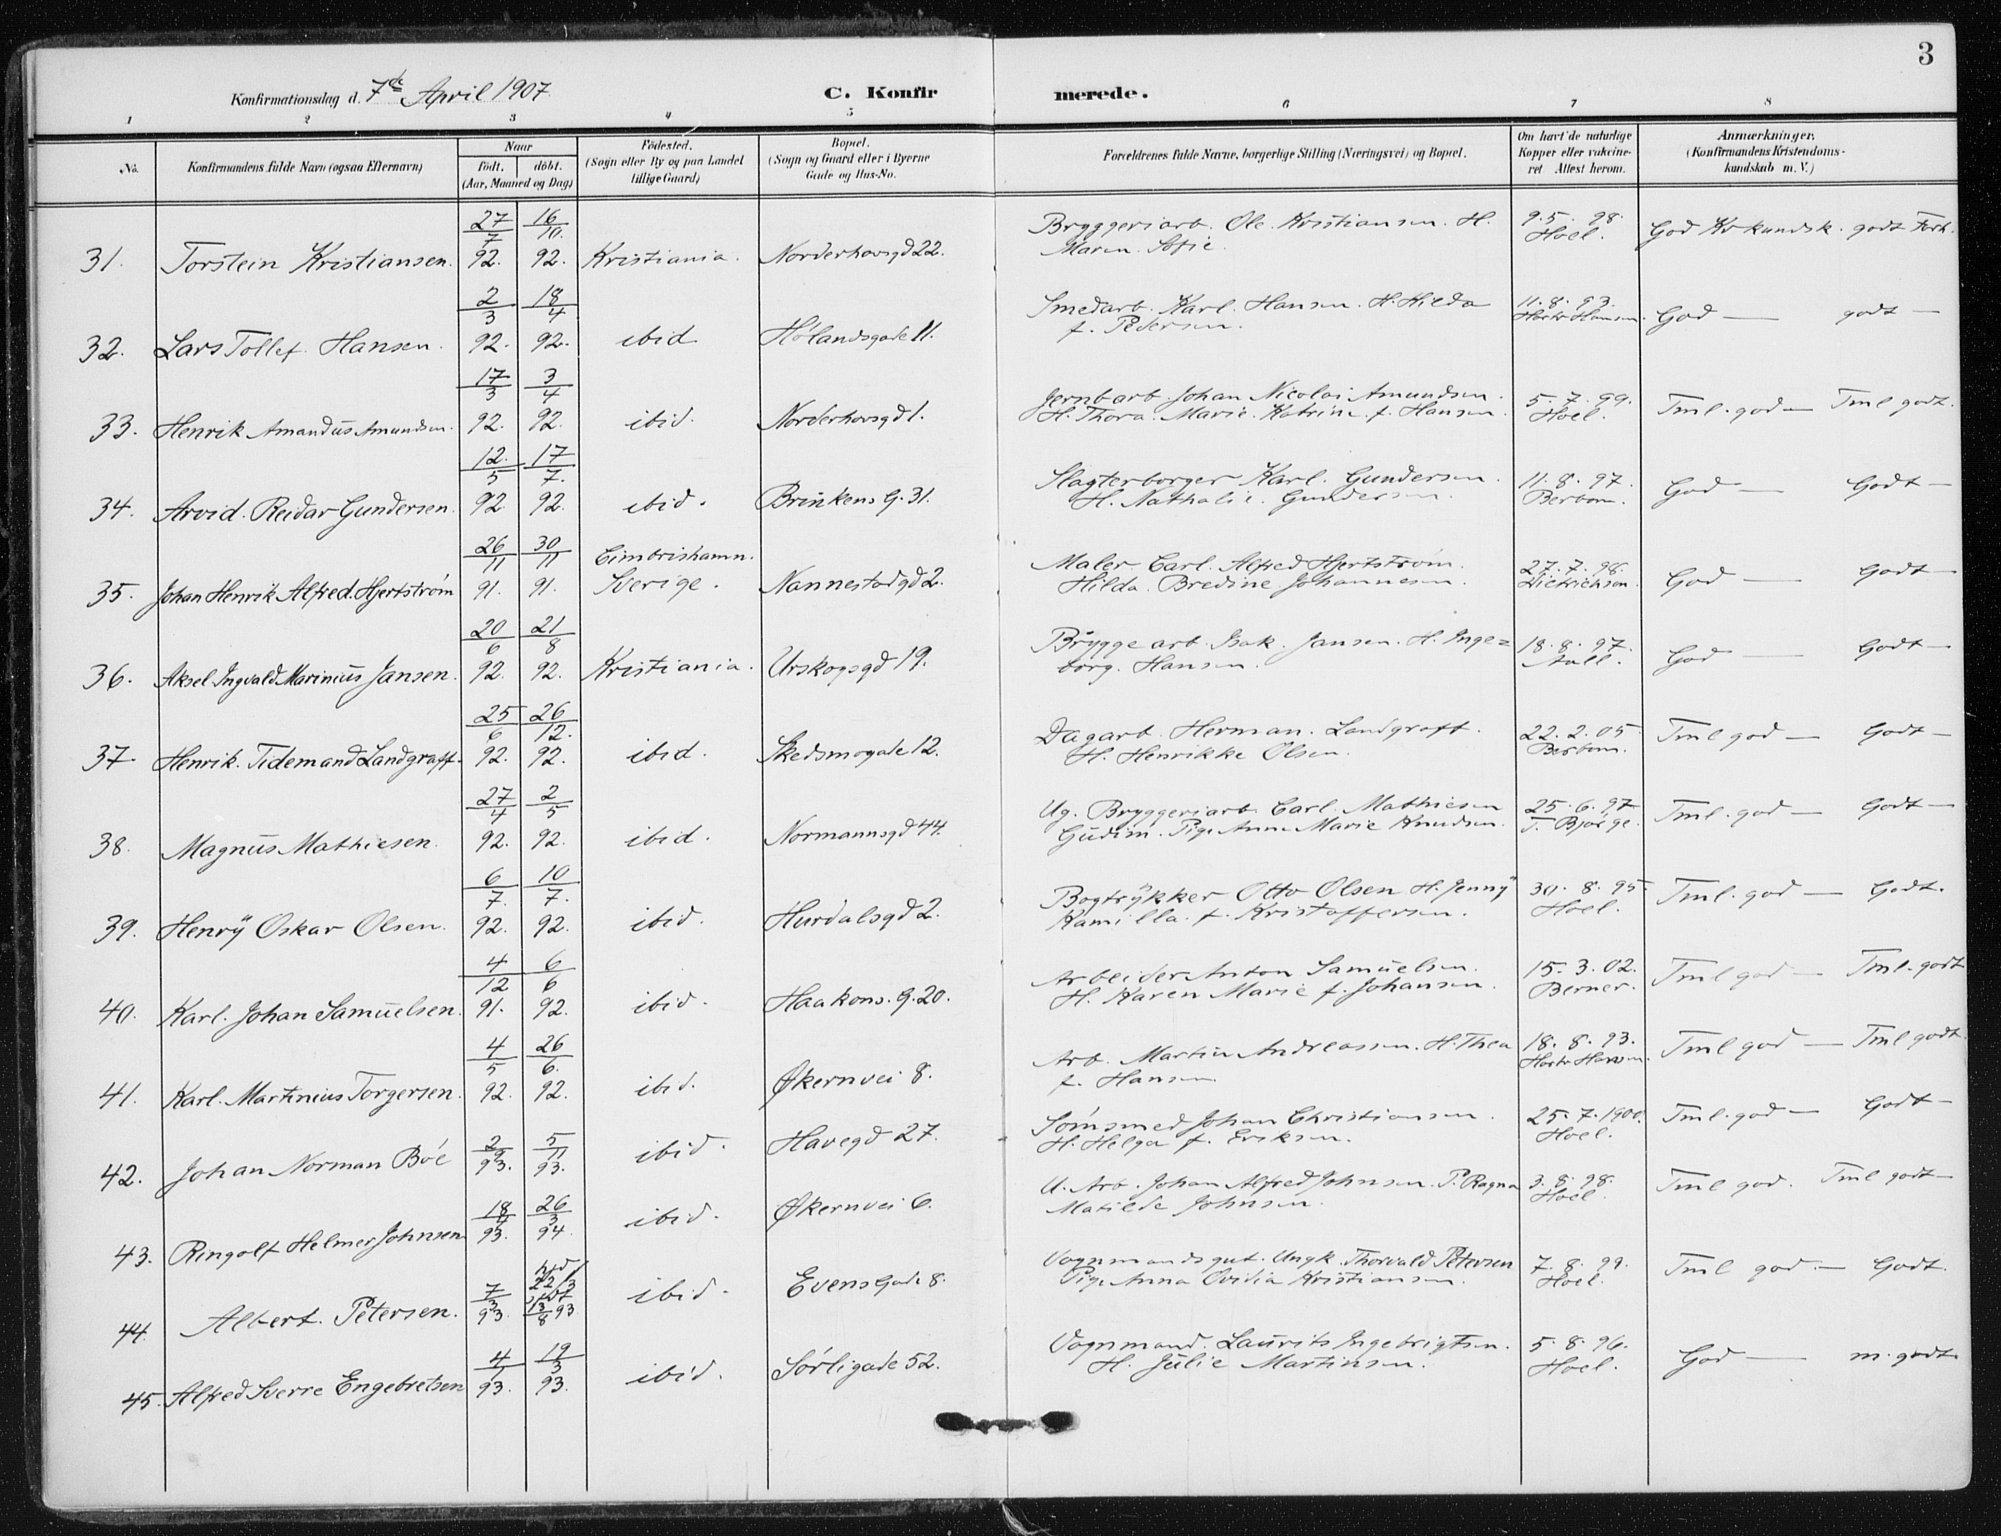 3
Konfirmationsdag d. 7de April 1907. C. Konfir merede.
1 2 3 4 5 6 7 8
No. Konfirmandens fulde Navn (ogsaa Efternavn) Naar födt. döbt. (Aar, Maaned og Dag)
Födested. (Sogn eller By og paa Landet tillige Gaard)
Bopæl. (Sogn og Gaard eller i Byerne Gade og Hus-No.
Forældrenes fulde Navne, borgerlige Stilling (Næringsvei) og Bopæl.
Om havt de naturlige Kopper eller vakcineret Attest herom.
Anmærkninger. (Konfirmandens Kristendomskundskab m. V.)
31. Torstein Kristiansen. 27/7 92. 16/10. 92. Kristiania. Norderhovsgd 22. Bryggeriarb. Ole Kristiansen. H. Maren Sofie. 9. 5. 98. Hoel. God Kr kundsk. godt Forh.
32. Lars Tollef. Hansen. 2/3 92. 18/4 92. ibid Hølandsgade 11. Smedarb. Karl. Hansen. H. Hilda f. Pedersen. 11. 8. 93. Hansen. God — godt —
33. Henrik Amandus Amundsen. 17/3 92. 3/4 92. ibid. Norderhovsgd 1. Jernbarb. Johan Nicolai Amundsen. H. Thora. Marie. Katrine f. Hansen. 5. 7. 99. Hoel. Tml. god — Tml godt.
34. Arvid. Reidar Gundersen. 12/5 92. 17/7. 92. ibid. Brinkens G. 31. Slagterborger Karl. Gundersen. H. Nathalie. Gundersen. 11. 8. 97. Berbom. God — Godt —
35. Johan Henrik Alfred. Hjertstrøm 26/11 91. 30/11 91. Cimbrishamn. Sverige. Nannestadgd 2. Maler Carl. Alfred Hjertstrøm. Hilda. Bredine Johannesen. 27. 7. 98. Dietrichson. God — Godt —
36. Aksel Ingvald Marinius Jansen. 20/6 92. 21/8 92. Kristiania. Urskogsgd 19. Brygge arb. Isak. Jansen. H. Inge= borg. Hansen. 18. 8. 97. Aall. God — Godt —
37. Henrik. Tidemand Landgraff. 25/6 92. 26/12. 92. ibid. Skedsmogade 12. Dagarb. Herman. Landgraff. H. Henrikke Olsen. 22. 2. 05. Berbom. Tml god — Godt —
38. Magnus Mathiesen. 27/4 92. 2/5 92. ibid. Normannsgd 44. Ug. Bryggeriarb. Carl. Mathiesen Gudim. Pige Anne Marie Knudsen. 25. 6. 97 T. Bjørge. Tml. god — Godt —
39. Henrÿ Oskar Olsen. 6/7. 92. 10/7. 92. ibid. Hurdalsgd 2. Bogtrÿkker Otto Olsen H. Jennÿ Kamilla. f. Kristoffersen. 30. 8. 95. Hoel. Tml. god — Godt.
40. Karl. Johan Samuelsen. 4/12 91. 6/6 92. ibid. Haakons. G. 20. Arbeider Anton Samuelsen. H. Karen Marie f. Johansen. 15. 3. 02. Berner. Tml god — Tml. godt
41. Karl. Martinius Torgersen. 4/5 92. 26/6. 92. ibid. Økernvei 8. Arb. Martin Andreassen. H. Thea f. Hansen. 18. 8. 93. Hansen. Tml god — Tml godt.
42. Johan Norman Bøe 93. 5/11 93. ibid. Havegd 27. Sømsmed Johan Christiansen. H. Helga f. Eriksen. 25. 7. 1900. Hoel. Tml. god — Godt —
43. Ringolf Helmer Johnsen 93. 26/3 94. ibid. Økernvei 6. U. Arb. Johan Alfred Johnsen. P. Ragna Matilde Johnsen. 3. 8. 98. Hoel. Tml god. Tml godt —
44. Albert. Petersen. 7/3 93. 22/3 13/8 93 ibid. Evens Gade 8. Vognmandsgut. Ungk. Thorvald Petersen Pige Anna Ovidia Kristiansen. 7. 8. 99. Hoel. Tml god. — Godt.
45. Alfred Sverre Engebretsen 93. 19/3 93. ibid. Sørligade 52. Vognmand. Laurits Ingebrigtsen. H. Julie Martinsen. 5. 8. 96. Hoel. God — m. godt.